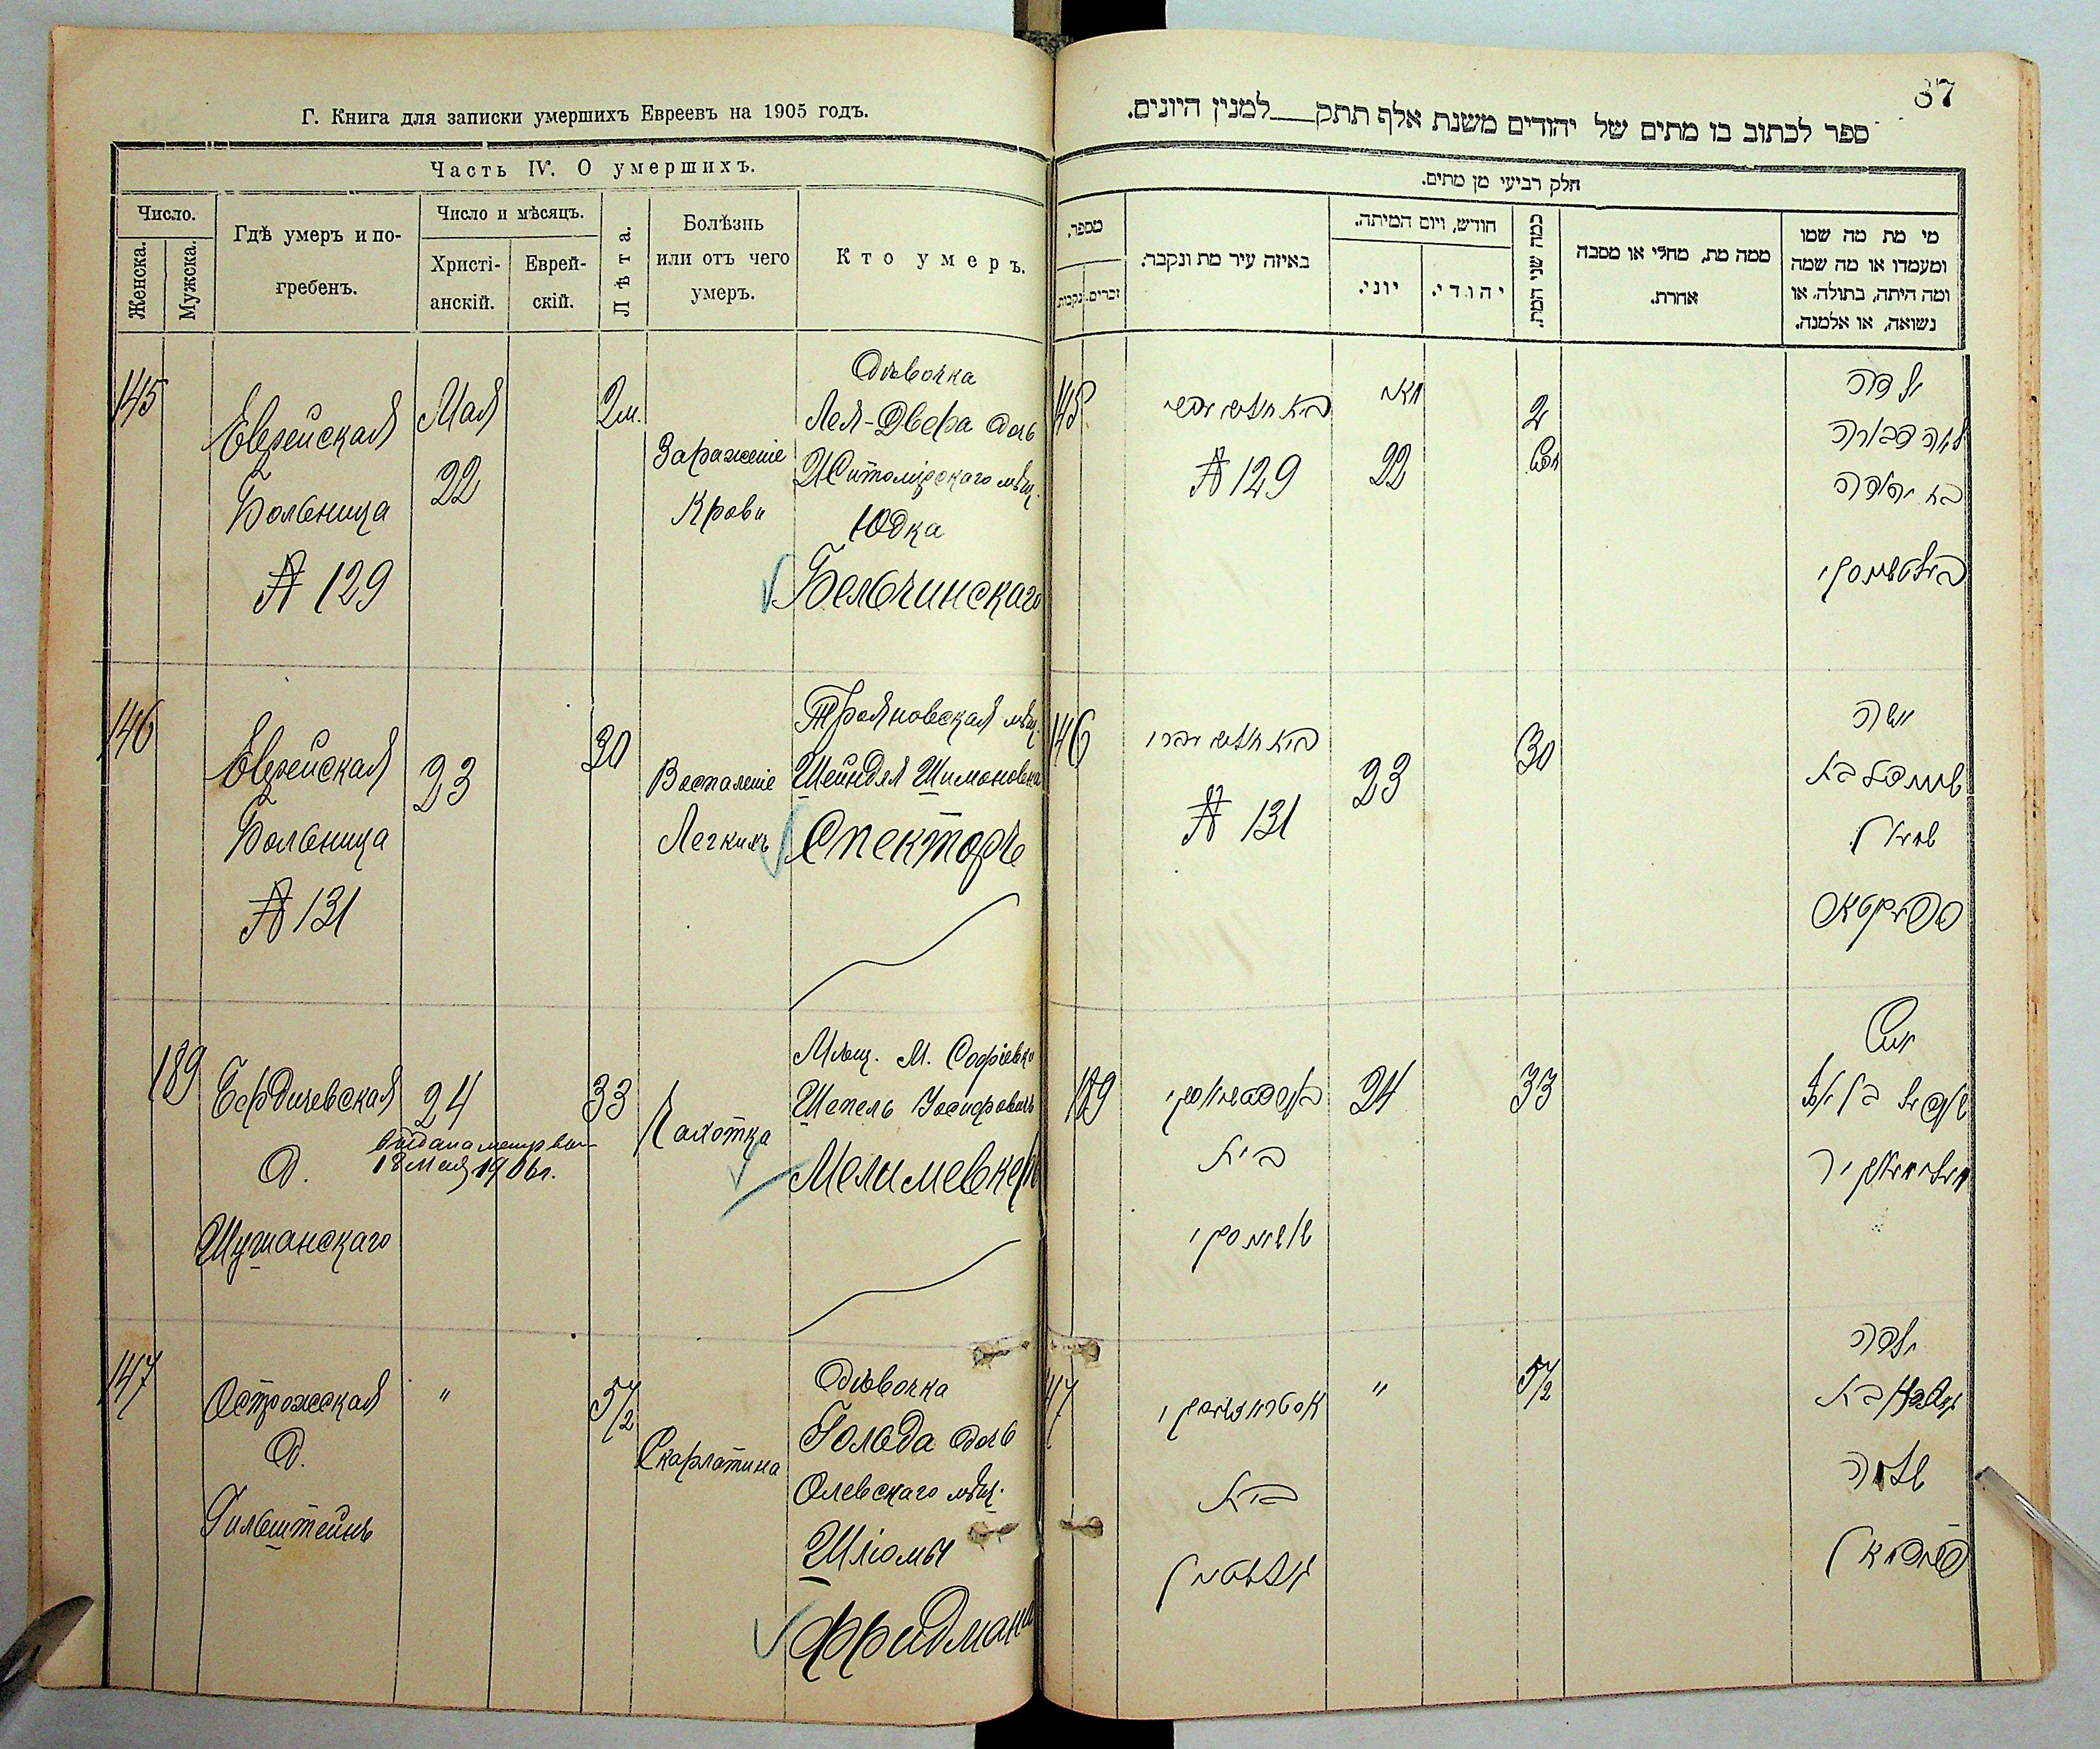 Г. Книга для записки умершихъ Евреевъ на 1905 годъ.
Часть IV. О умершихъ.
Число.
Женска.
Мужска.
Гдѣ умеръ и по-
гребенъ.
Число и мѣсяцъ.
Христі-
анскій.
Еврей-
скій.
Лѣта.
Болѣзнь
или отъ чего
умеръ.
Кто умеръ.
145
Еврейская
Больница
№ 129
Мая
22
2 м.
Зараженіе
Крови
Дѣвочка
Лея-Двейра дочь
Житомірскаго мѣщ.
Юдка
Бельчинскаго
146
Еврейская
Больница
№ 131
23
30
Воспаленіе
Легкихъ
Трояновская мѣщ.
Шейндля Шимоновна
Спекторъ
189
Бердичевская
д.
Шушанскаго
24
Выдана метр вып
18 Мая 1906 г.
33
Чахотка
Мѣщ. М. Софіевка
Шепель Іосифовичъ
147
Острожская
д.
Гильштейнъ
"
5 1/2
Скарлатина
Дѣвочка
Голда дочь
Олевскаго мѣщ.
Шліомы
Фридмана
87
ספר לכתוב בו מתים של יהודים משנת אלף תתק___למנין היונים.
חלק רביעי מן מתים.
מספר.
נקבות.
זכרים.
באיזה עיר מת ונקבר.
חודש, ויום המיתה.
יוני.
יהודי.
כמה שני המת.
ממה מת, מחלי או מסבה
אחרת.
מי מת מה שמו
ומעמדו או מה שמה
ומה היתה, בתולה, או
נשואה, או אלמנה.
145
№ 129
מאי
22
2
ילדה
לאה דבורה
בת יהודה
146
№ 131
23
30
אשה
שיינדל בת
שמעון
ספעקטאר
189
בית
24
33
איש
147
בית
"
5 1/2
ילדה
שלמה
פרידמאן